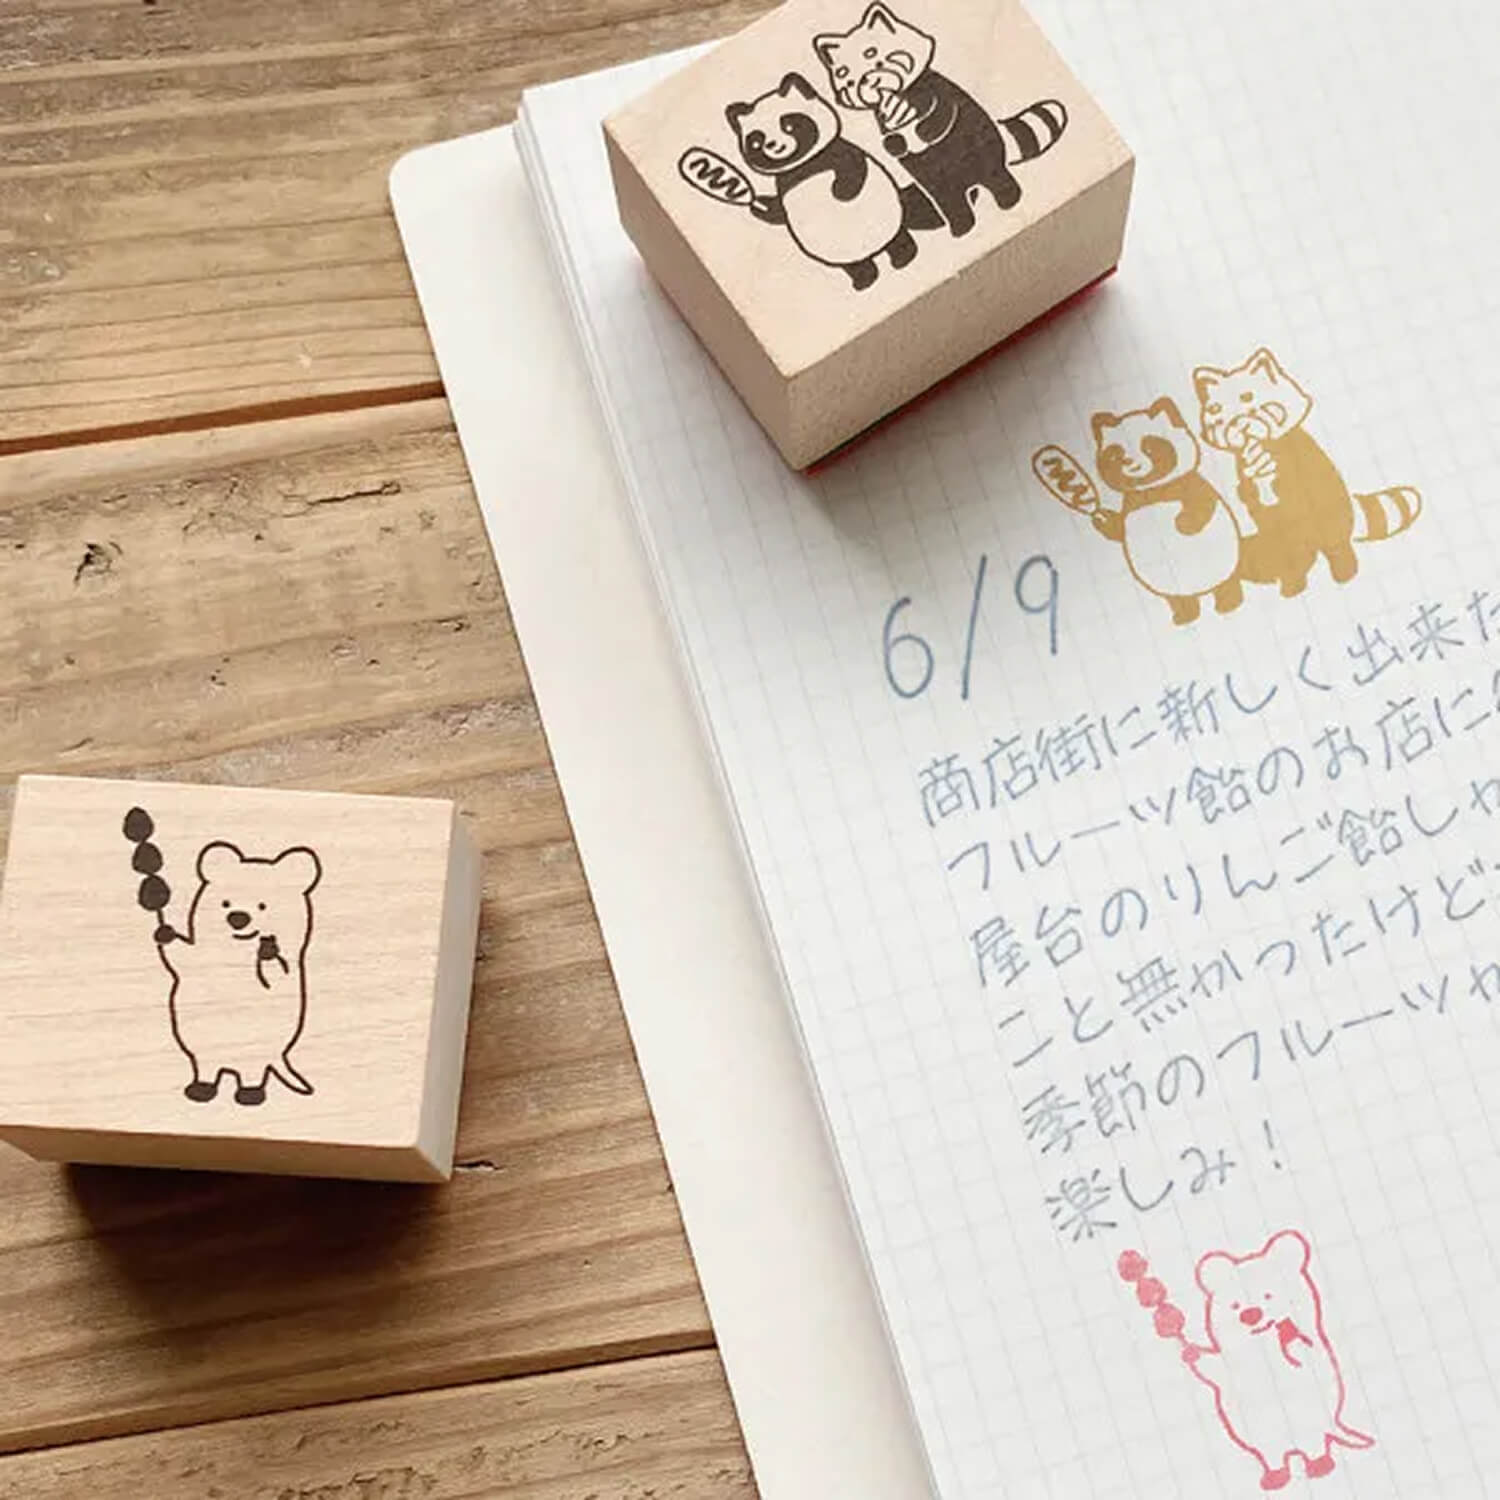 6/9
商店街に新しく出来た
フルーツ飴のお店に
屋台のりんご飴しか
こと無かったけど
季節のフルーツか
楽しみ!